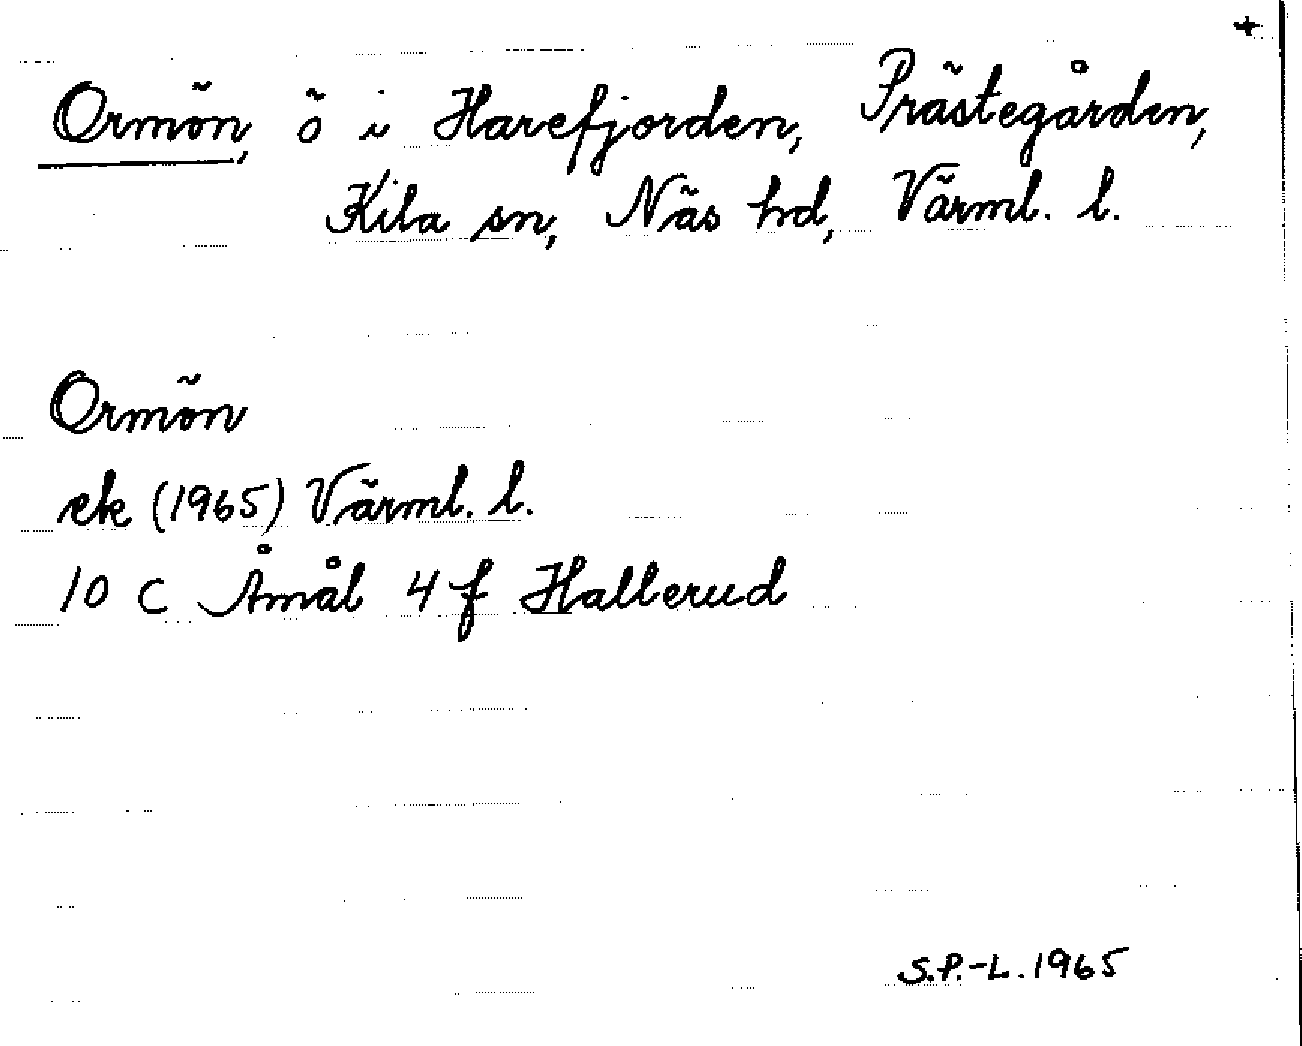 +
Ormön, ö i Harefjorden, Prästegården,
Kila sn, Näs hd, Värml. l.
Ormön
ek (1965) Värml. l.
10 C Åmål 4 f Hallerud
S.P.-L. 1965